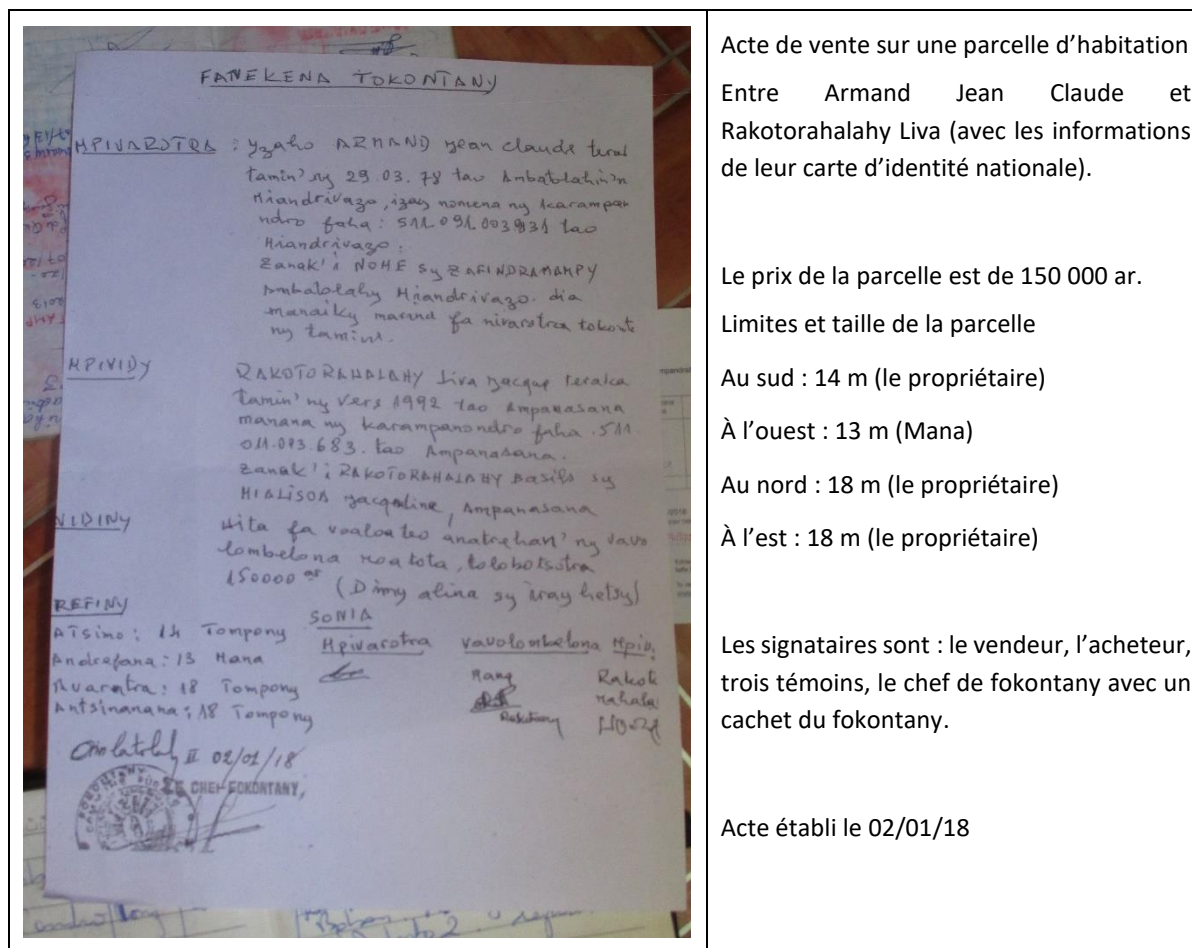 FANEKENA TOKONTANY
MPIVAROTRA : Yzaho ARMAND Jean claude teraka
tamin' ny 29.03.78 tao Ambatolahin'n
Miandrivazo, izay nomena ny karampan
ndro faha : 511.091.003831 tao
Miandrivazo.
Zanak'i NOHE sy ZAFINDRAMAMPY
Ambatolahy Miandrivazo. dia
manaiky marina fa nivarotra tokonta
ny tamin'i.
MPIVIDY
RAKOTORAHALAHY Liva Jacque teraka
tamin' ny Vers 1992 tao Ampanasana
manana ny karampanondro faha .511.
011.013.683. tao Ampanasana.
Zanak' i RAKOTORAHALAHY Basile sy
MIALISOA Jacqueline, Ampanasana
VIDINY
Vita fa voaloa teo anatrehan' ny vavo
lombelona roa tota, tolobotsotra
150000 ar (Dimy alina sy iray hetsy)
REFINY
ATsimo : 14 Tompony
Andrefana : 13 Mana
Avaratra : 18 Tompony
Antsinanana : 18 Tompony
SONIA
Mpivarotra vavolombelona Mpiv.
Mang
Rakoto
rahala
02/01/18
LE CHEF FOKONTANY,
Acte de vente sur une parcelle d’habitation
Entre Armand Jean Claude et
Rakotorahalahy Liva (avec les informations
de leur carte d’identité nationale).
Le prix de la parcelle est de 150 000 ar.
Limites et taille de la parcelle
Au sud : 14 m (le propriétaire)
À l’ouest : 13 m (Mana)
Au nord : 18 m (le propriétaire)
À l’est : 18 m (le propriétaire)
Les signataires sont : le vendeur, l’acheteur,
trois témoins, le chef de fokontany avec un
cachet du fokontany.
Acte établi le 02/01/18